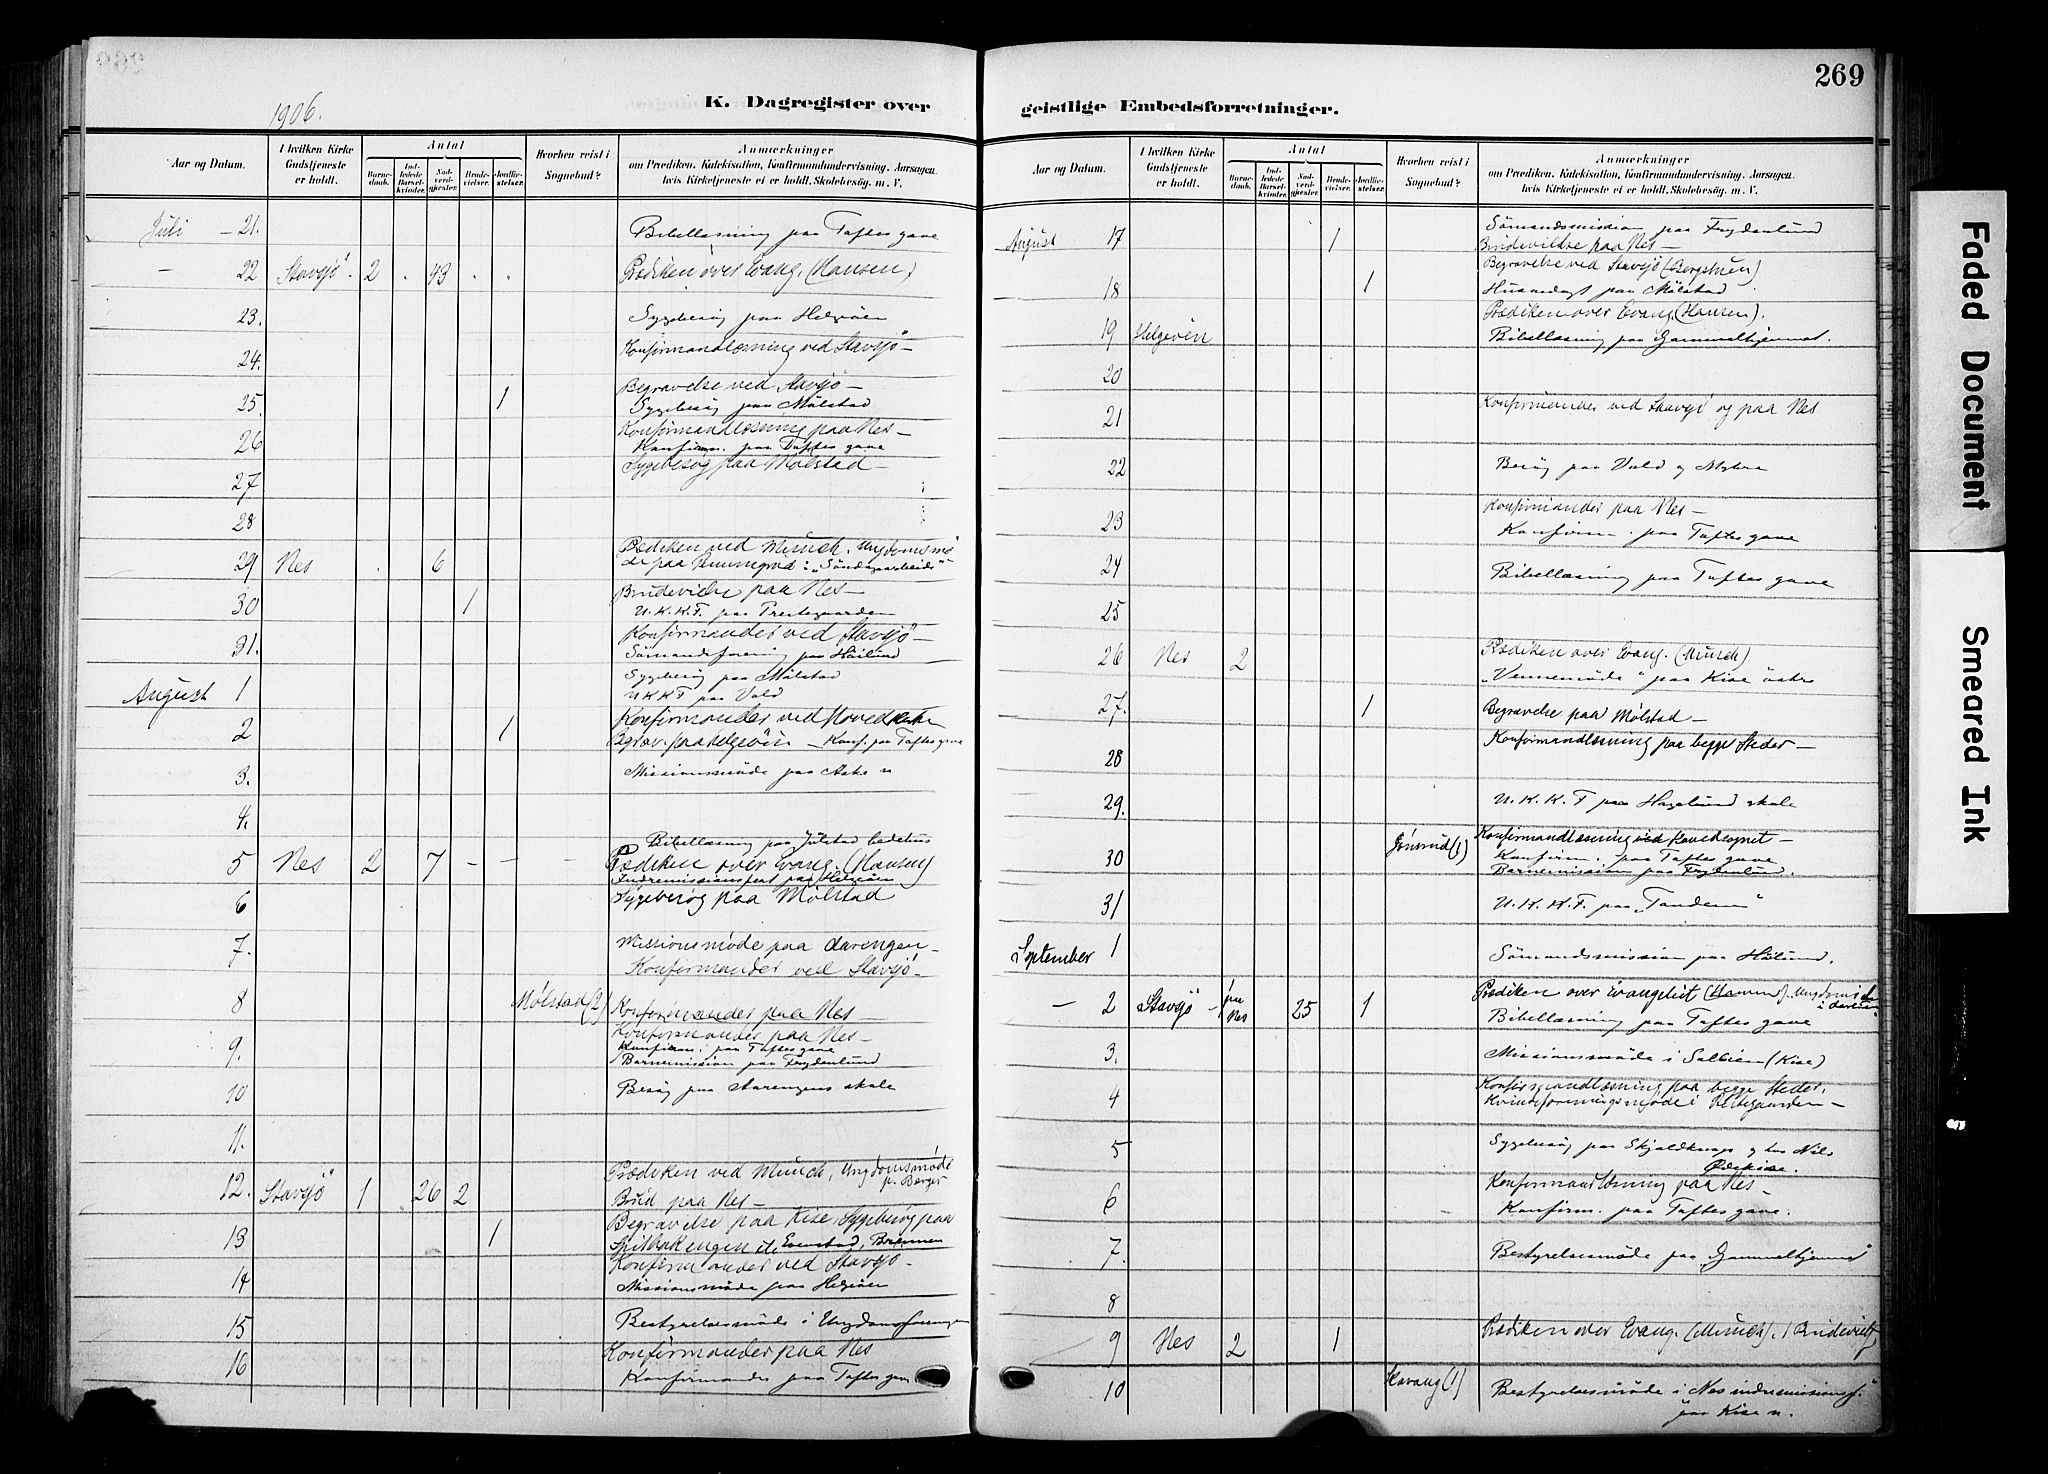 269
1906.
K. Dagregister over
geistlige Embedsforretninger.
Aar og Datum.
I hvilken Kirke Gudstjeneste er holdt.
Antal
Barnedaab.
Indledede Barselkvinder.
Nadverdgjester.
Brudevielser.
Jordfæstelser.
Hvorhen reist i Sognebud?
Anmærkninger
om Prædiken, Katekisation, Konfirmandundervisning, Aarsagen,
hvis Kirketjeneste ei er holdt, Skolebesög. m. V.
Juli - 21. Bibellæsning paa Toftes gave
- 22 Stavsjö 2 . 43 . . Prædiken over Evang. (Hansen)
23. Sygebesög paa Helgøen
24. Konfirmandlæsning ved Stavsjö -
25. 1 Begravelse ved Stavsjö -
Sygebesög paa Mölstad
26 Konfirmandlæsning paa Nes -
Konfirm. paa Toftes gave
27 Sygebesög paa Mölstad -
28
29 Nes . 6 Prædiken ved Münch. Ungdomsmö
de paa "Söndagsarbeide"
30 1 Brudevielse paa Nes -
U.K.K.F. paa Prestegaarden
31. Konfirmander ved Stavsjö -
Sömandsforening paa Höilund
August 1 Sygebesög paa Mölstad
U.K.K.F paa Vold
2 1 Konfirmander ved Hovedkirken
Begrav. paa Helgeöen - Konf. paa Toftes gave
3. Missionsmöde paa Aske n
4.
Bibellæsning paa Julstad bedehus
5 Nes 2 7 - - - Prædiken over Evang. (Hansen)
Indremissionsfest paa Helgöen
6 Sygebesög paa Mölstad
7. Missionsmöde paa Aarengen -
Konfirmander ved Stavsjö -
8 Mölstad (2) Konfirmander paa Nes -
9. Konfirmander paa Nes -
Konfirm. paa Toftes gave
Barnemission paa Frydenlund
10 Besög paa Aarengens skole
11.
12. Stavsjö 1 26 2 Prædiken ved Münch, Ungdomsmöde
p. Berger
Brud paa Nes -
13 1 Begravelse paa Kise Sygebesög paa
Evenstad, Brennen
14 Konfirmander ved Stavsjö -
Missionsmöde paa Helgöen
15 Bestyrelsesmöde i Ungdomsforeningen
16 Konfirmander paa Nes
Konfirmander paa Toftes gave
Aar og Datum.
I hvilken Kirke Gudstjeneste er holdt.
Antal
Barnedaab.
Indledede Barselkvinder.
Nadverdgjester.
Brudevielser.
Jordfæstelser.
Hvorhen reist i Sognebud?
Anmærkninger
om Prædiken, Katekisation, Konfirmandundervisning, Aarsagen,
hvis Kirketjeneste ei er holdt, Skolebesög. m. V.
August 17 1 Sömandsmission paa Frydenlund
Brudevielse paa Nes -
18 1 Begravelse ved Stavsjö (Bergstuen)
Husandagt paa Mölstad
19 Helgeöen Prædiken over Evang. (Hansen).
Bibellæsning paa Gammelhjemmet.
20
21 Konfirmander ved Stavsjö og paa Nes
22 Besög paa Vold og Myhre
23 Konfirmander paa Nes -
Konfirm. paa Toftes gave
24 Bibellæsning paa Toftes gave
25
26 Nes 2 Prædiken over Evang. (Münch)
"Vennemöde" paa Kise östre
27. 1 Begravelse paa Mölstad -
28 Konfirmandlæsning paa begge Steder -
29. U.K.K.F paa Hagelund skole
30 Jönsrud (1) Konfirmandlæsning ved Hovedsognet -
Konfirm. paa Toftes gave
Barnemission paa Frydenlund.
31 U.K.K.F. paa "Tanderen"
September 1 Sömandsmission paa Höilund.
- 2 Stavsjö 1 paa Nes 25 1 Prædiken over Evangeliet (Hansen). Ungdomsm.
Bibellæsning paa Toftes gave
3. Missionsmöde i Solbien (Kise)
4 Konfirmandlæsning paa begge Steder,
Kvindeforeningsmöde i Prestegaarden -
5 Sygebesög paa Skjaldknap og hos Nils
Ödekise.
6 Konfirmandlæsning paa Nes -
Konfirm. paa Toftes gave.
7. Bestyrelsesmöde paa "Gammelhjemmet"
8
9 Nes 2 1 Prædiken over Evang. (Münch). 1 Brudevielse
10 (1) Bestyrelsesmöde i Nes indremissionsf.
paa Kise n.
Faded Document
Smeared Ink